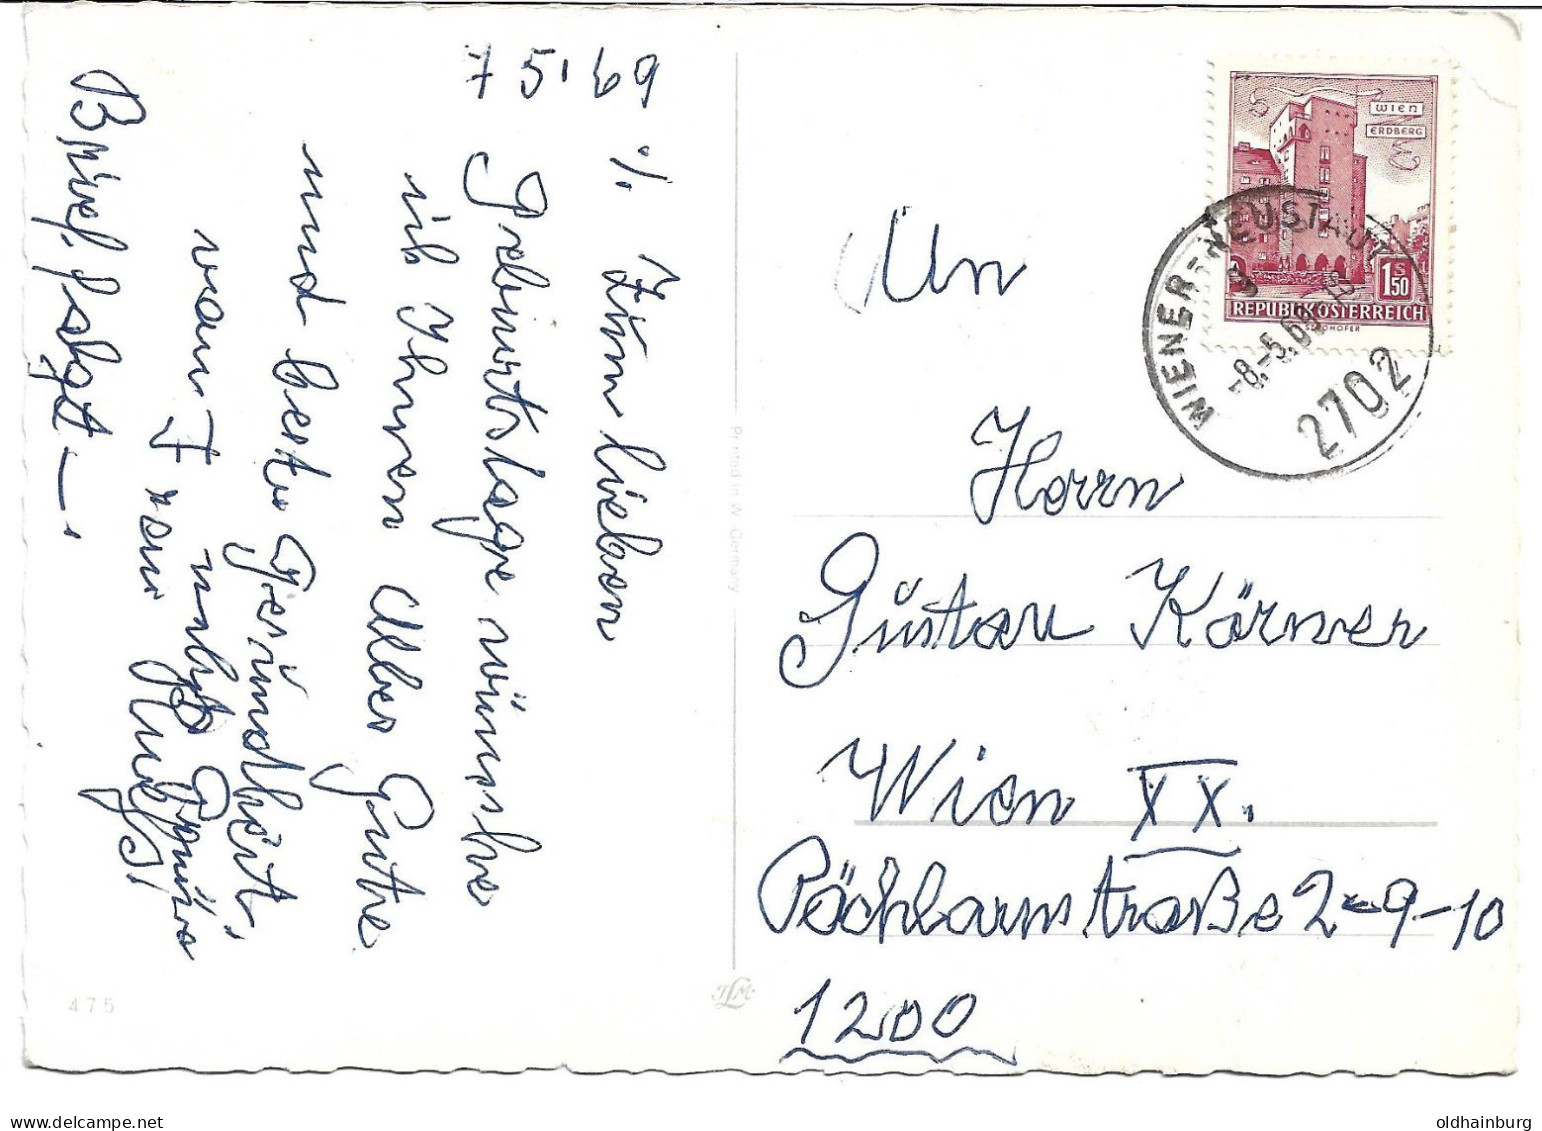 7 5. 69
./.
Zum lieben
Geburtstage wünsche
ich Ihnen Alles Gute
und beste Gesundheit,
Brief folgt —.
WIEN
ERDBERG
1 S 50
REPUBLIK ÖSTERREICH
WIENER NEUSTADT
-8.-5.69
2702
An
Herrn
Gustav Körner
Wien XX.
Pöchlarnstraße 2-9-10
1200
Printed in W.-Germany
475
oldhainburg